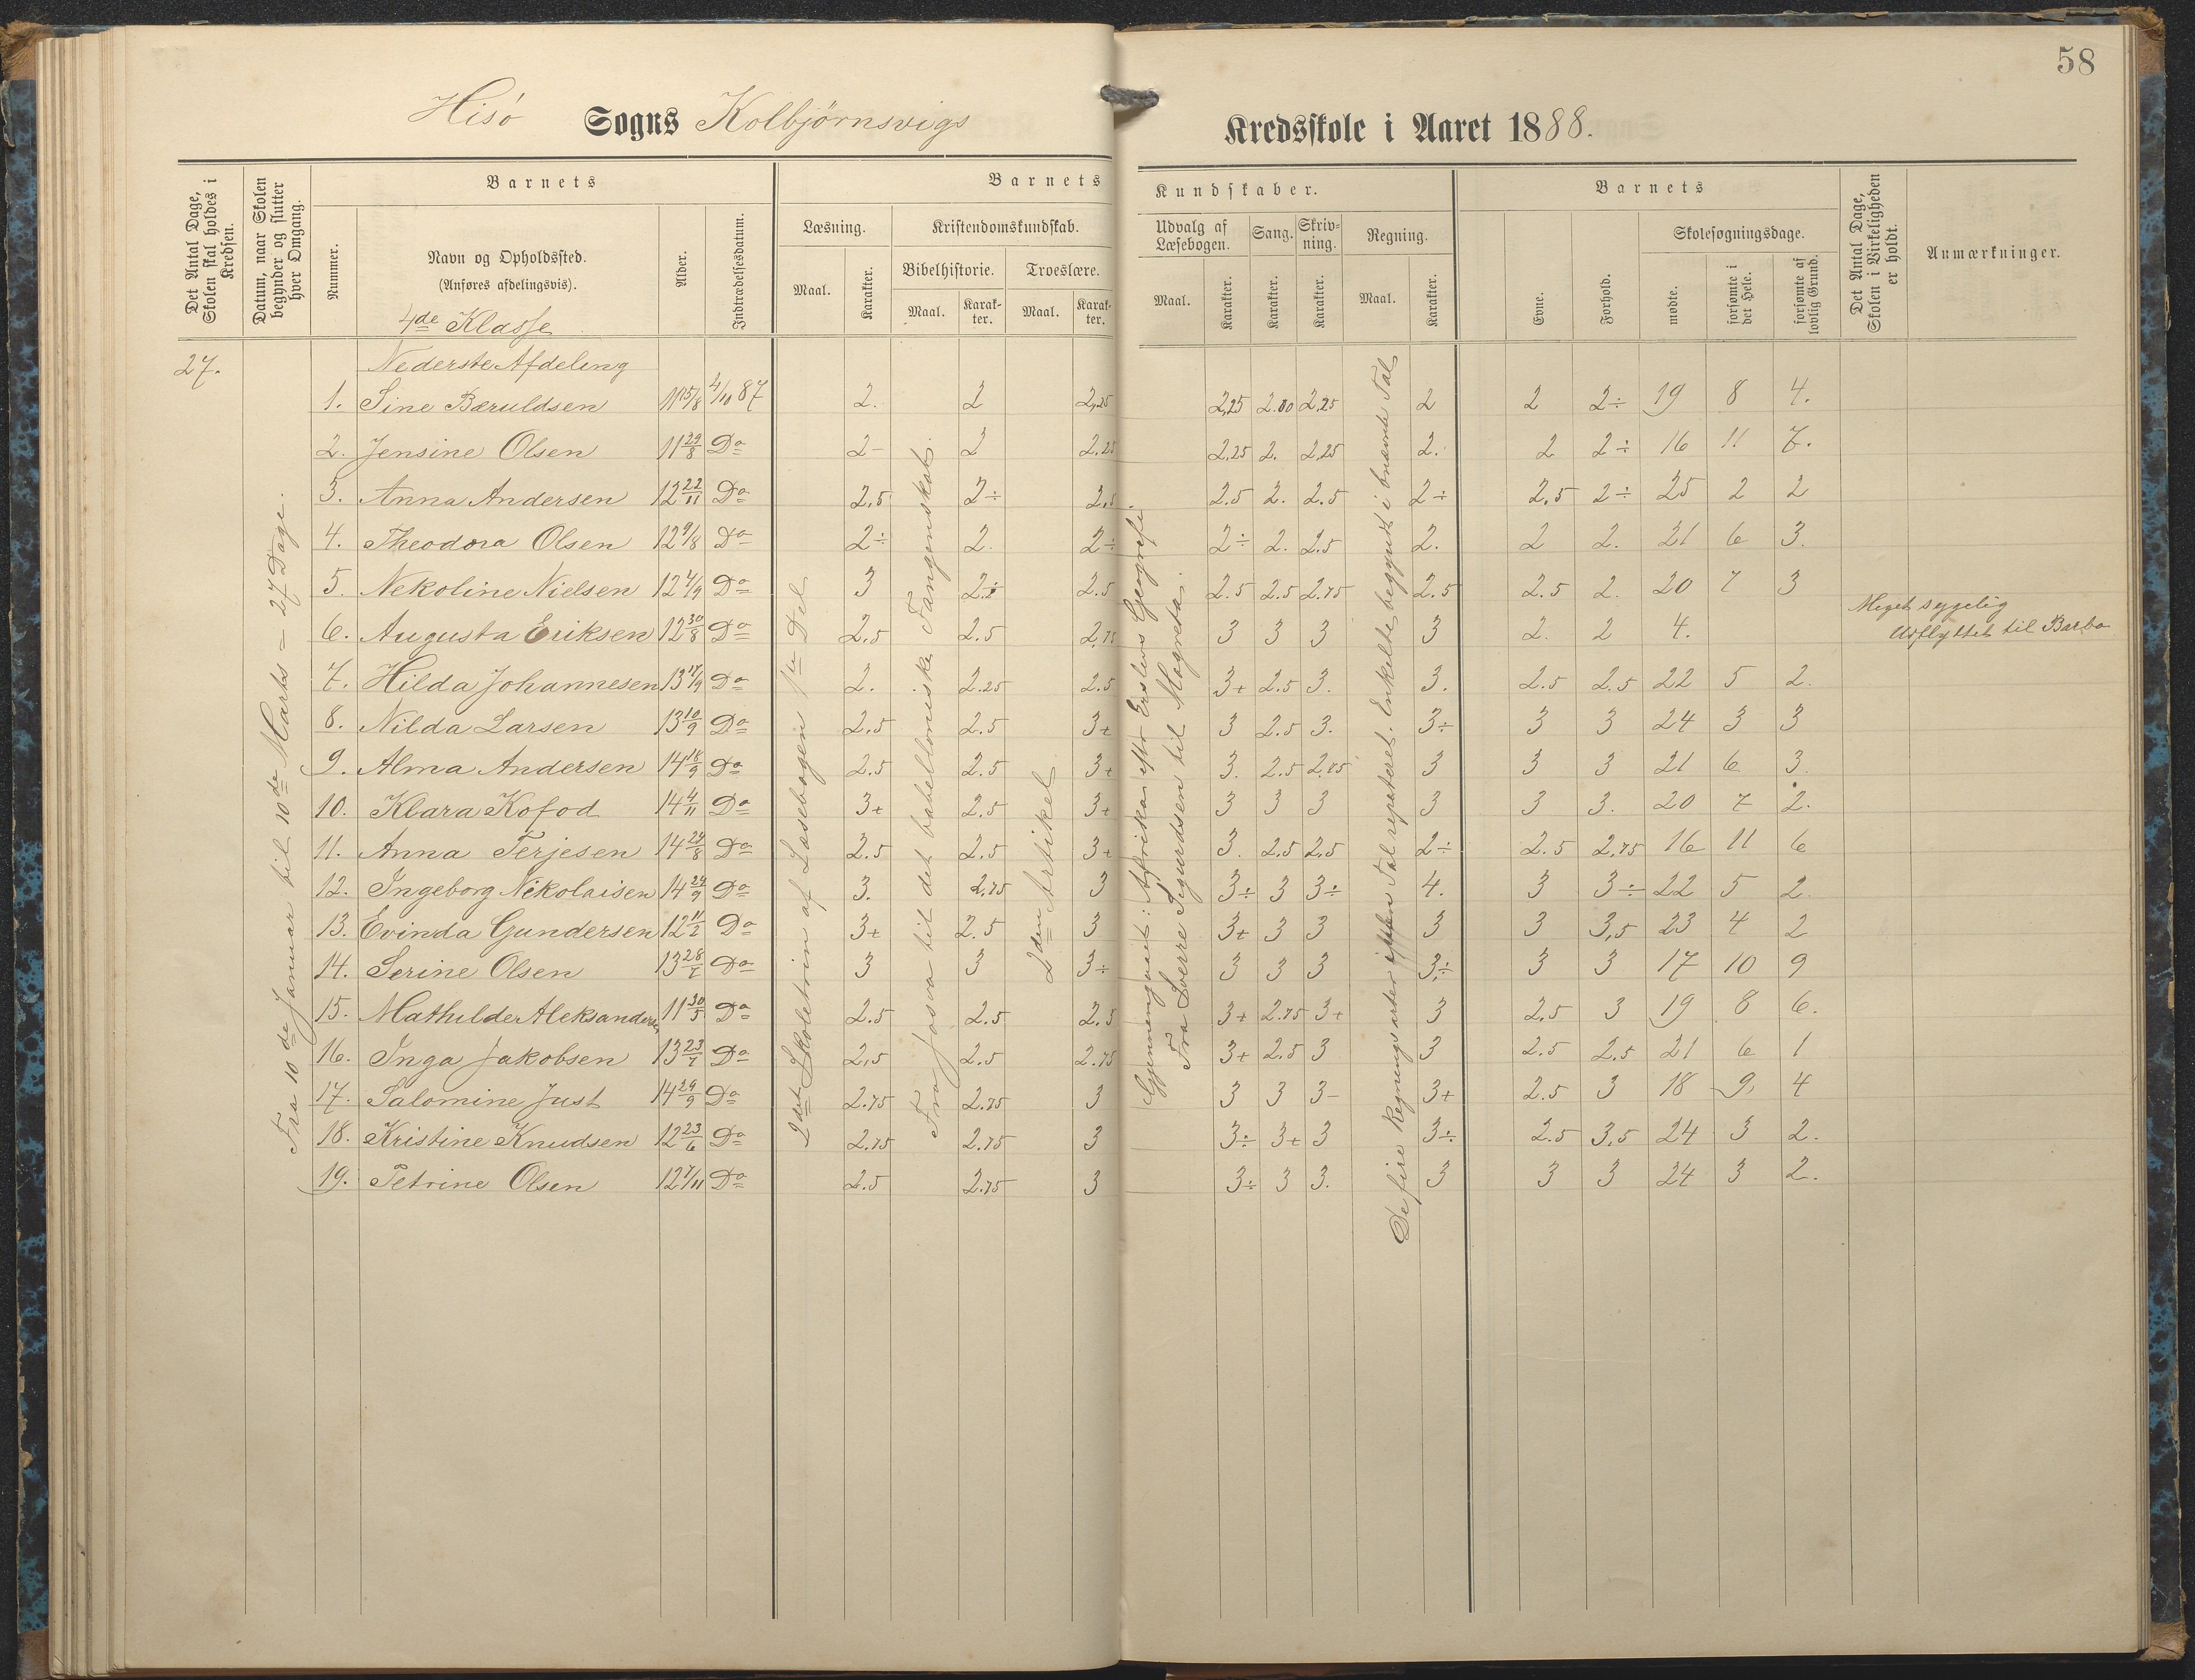 58
Hisö Sogns Kolbjörnsvigs Kredsskole i Aaret 1888.
Det Antal Dage, Skolen skal holdes i Kredsen.
Datum, naar Skolen begynder og slutter hver Omgang.
Barnets
Nummer.
Navn og Opholdssted.
(Anføres afdelingsvis).
Alder.
Indtrædelsesdatum.
Barnets Kundskaber.
Læsning.
Maal. Karakter.
Kristendomskundskab.
Bibelhistorie. Troeslære.
Maal. Karakter. Maal. Karakter.
Udvalg af Læsebogen. Sang. Skrivning. Regning.
Maal. Karakter. Karakter. Karakter. Maal. Karakter.
Barnets
Evne. Forhold.
Skolesøgningsdage.
mødte. forsømte i det Hele. forsømte af lovlig Grund.
Det Antal Dage, Skolen i Virkeligheden er holdt.
Anmærkninger.
4de Klasse
27. Nederste Afdeling
1. Sine Bæruldsen 11 15/8 4/10 87 2. 2 2,25 2,25 2.00 2,25 2 2 2÷ 19 8 4.
2. Jensine Olsen 11 29/8 Do 2- 2 2.25 2,25 2. 2,25 2. 2 2÷ 16 11 7.
3. Anna Andersen 12 22/11 Do 2,5 2÷ 2,5 2.5 2. 2.5 2÷ 2,5 2÷ 25 2 2
4. Theodora Olsen 12 9/8 Do 2÷ 2. 2÷ 2÷ 2. 2.5 2. 2 2. 21 6 3.
5. Nekoline Nielsen 12 4/9 Do 3 2÷ 2.5 2.5 2.5 2.75 2.5 2.5 2. 20 7 3
6. Augusta Eriksen 12 30/8 Do 2,5 2.5 2,75 3 3 3 3 2. 2 4. Meget sygelig
Udflyttet til Barbo
7. Hilda Johannesen 13 17/9 Do 2. 2.25 2.5 3+ 2.5 3. 3. 2.5 2.5 22 5 2.
8. Nilda Larsen 13 10/9 Do 2,5 2.5 3+ 3 2.5 3. 3÷ 3 3 24 3 3
9. Alma Andersen 14 18/9 Do 2.5 2.5 3+ 3. 2.5 2.75 3 3 3 21 6 3.
10. Klara Kofod 14 4/11 Do 3+ 2.5 3+ 3 3 3 3 3 3. 20 7 2.
11. Anna Terjesen 14 24/8 Do 2.5 2.5 3+ 3. 2.5 2,5 2÷ 2.5 2,75 16 11 6
12. Ingeborg Nikolaisen 14 24/9 Do 3. 2,75 3 3÷ 3 3÷ 4. 3 3÷ 22 5 2.
13. Evinda Gundersen 12 11/2 Do 3+ 2.5 3 3+ 3 3 3 3 3,5 23 4 2
14. Serine Olsen 13 28/7 Do 3 3 3÷ 3 3 3 3÷ 3 3 17 10 9
15. Mathilde Aleksandersen 11 30/5 Do 2.5 2.5 2,5 3+ 2.75 3+ 3 2,5 3 19 8 6.
16. Inga Jakobsen 13 23/7 Do 2,5 2.5 2.75 3+ 2.5 3 3 2.5 2.5 21 6 1
17. Salomine Just 14 29/9 Do 2.75 2.75 3 3 3 3- 3+ 2.5 3 18 9 4
18. Kristine Knudsen 12 23/6 Do 2.75 2.75 3 3÷ 3+ 3 3÷ 2.5 3,5 24 3 2.
19. Petrine Olsen 12 7/11 Do 2.5 2.75 3 3÷ 3 3. 3 3 3 24 3 2.
Fra 10de Januar til 10de Marts = 27 Dage.
2det Skoletrin af Læsebogen 1ste Del
Fra Josva til det babelloniske Fangenskab.
2den Artikel
Gjennemgaaet: Afrika efter Erslevs Geografi.
Fra Sverre Sigurdsen til Magreta.
De fire Regningsarter Tal repeteret. Enkelte begyndt i bnævnte Tal